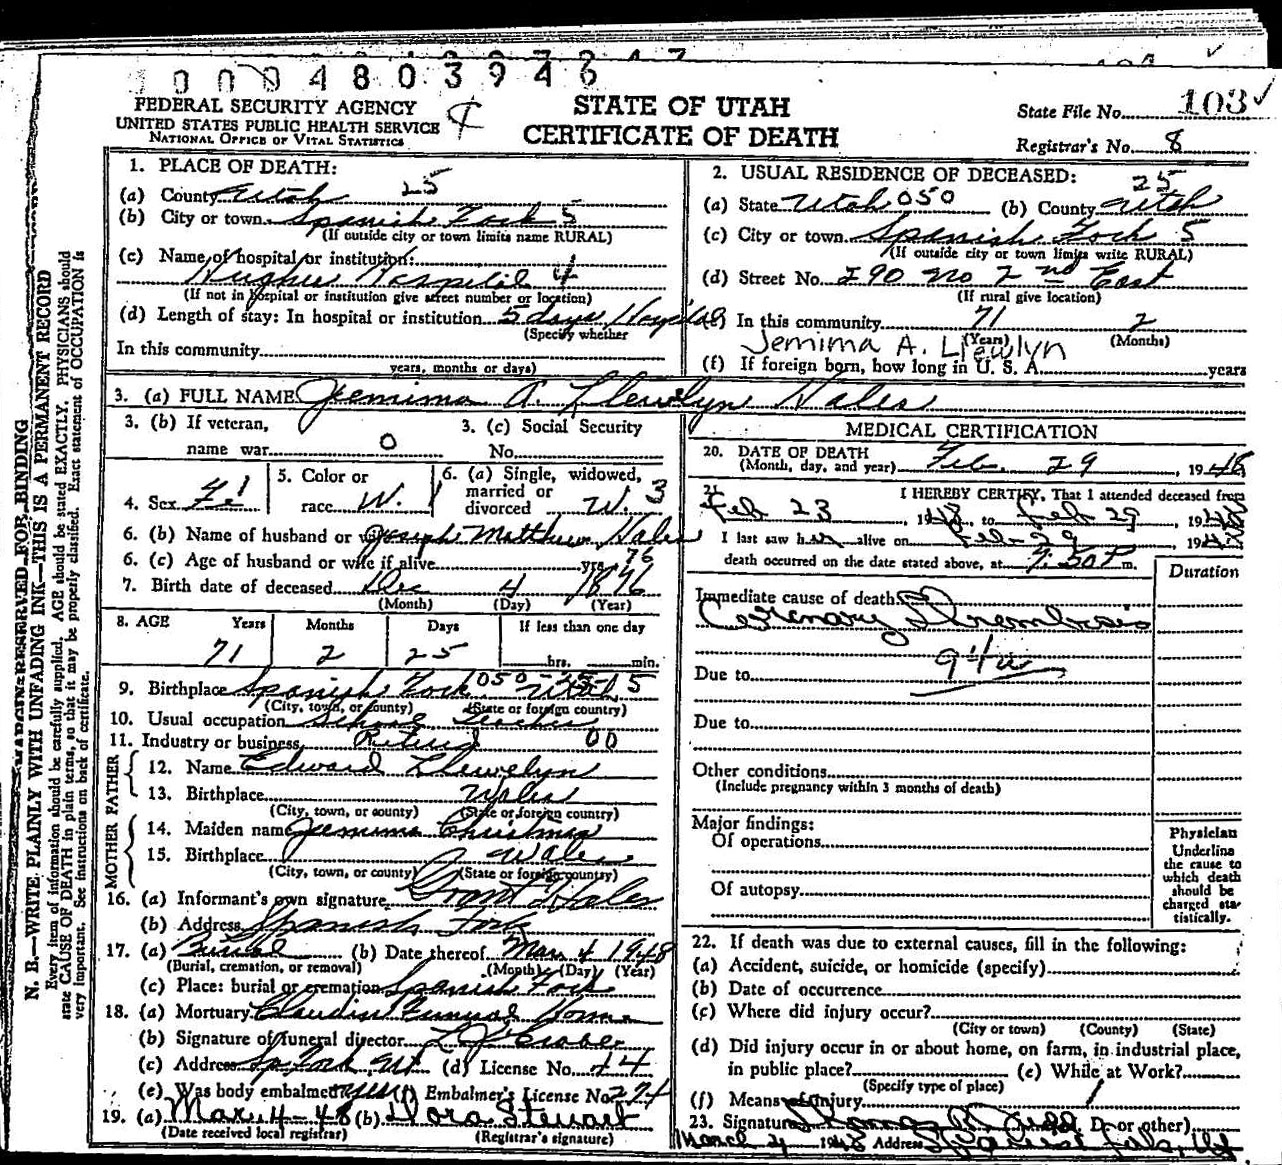 0 0 0 4 8 0 3 9 4 6
FEDERAL SECURITY AGENCY
UNITED STATES PUBLIC HEALTH SERVICE
NATIONAL OFFICE OF VITAL STATISTICS
STATE OF UTAH
CERTIFICATE OF DEATH
State File No. 103
Registrar's No. 8
N. B.—WRITE PLAINLY WITH UNFADING INK—THIS IS A PERMANENT RECORD
MARGIN RESERVED FOR BINDING
Every item of information should be carefully supplied. AGE should be stated EXACTLY. PHYSICIANS should
state CAUSE OF DEATH in plain terms, so that it may be properly classified. Exact statement of OCCUPATION is
very important. See instructions on back of certificate.
1. PLACE OF DEATH:
(a) County Utah 25
(b) City or town Spanish Fork 5
(If outside city or town limits name RURAL)
(c) Name of hospital or institution:
Hughes Hospital 4
(If not in hospital or institution give street number or location)
(d) Length of stay: In hospital or institution 5 days Hospital
(Specify whether
In this community
years, months or days)
2. USUAL RESIDENCE OF DECEASED:
(a) State Utah 050 (b) County Utah 25
(c) City or town Spanish Fork 5
(If outside city or town limits write RURAL)
(d) Street No. 290 No 2nd East
(If rural give location)
(e) In this community 71 2
(Years) (Months)
Jemima A. Llewlyn
(f) If foreign born, how long in U. S. A. years
3. (a) FULL NAME Jemima A. Llewelyn Hales
3. (b) If veteran,
name war O
3. (c) Social Security
No.
4. Sex Fe 1
5. Color or
race W. 1
6. (a) Single, widowed,
married or
divorced W. 3
6. (b) Name of husband or wife Joseph Matthew Hales
6. (c) Age of husband or wife if alive yrs. 76
7. Birth date of deceased Dec 4 1876
(Month) (Day) (Year)
8. AGE Years Months Days If less than one day
71 2 25 hrs. min.
9. Birthplace Spanish Fork 050-25- Utah 5
(City, town, or county) (State or foreign country)
10. Usual occupation School Teacher
11. Industry or business Retired 00
FATHER
12. Name Edward Llewelyn
13. Birthplace Wales
(City, town, or county) (State or foreign country)
MOTHER
14. Maiden name Jemima Christmas
15. Birthplace Wales
(City, town, or county) (State or foreign country)
16. (a) Informant's own signature Grant Hales
(b) Address Spanish Fork
17. (a) Burial (b) Date thereof Mar 4 1948
(Burial, cremation, or removal) (Month) (Day) (Year)
(c) Place: burial or cremation Spanish Fork
18. (a) Mortuary Claudin Funeral Home
(b) Signature of funeral director
(c) Address Sp Fork Ut (d) License No. 44
(e) Was body embalmed yes (f) Embalmer's License No. 274
19. (a) Mar. 4-48 (b) Dora Stewart
(Date received local registrar) (Registrar's signature)
MEDICAL CERTIFICATION
20. DATE OF DEATH
(Month, day, and year) Feb. 29, 1948
21. I HEREBY CERTIFY, That I attended deceased from
Feb 23, 1948, to Feb 29 1948
I last saw her alive on Feb-29 1948
death occurred on the date stated above, at 7:30 P m.
Duration
Immediate cause of death
Coronary Thrombosis
94a
Due to
Due to
Other conditions
(Include pregnancy within 3 months of death)
Major findings:
Of operations
Of autopsy
Physician
Underline
the cause to
which death
should be
charged sta-
tistically.
22. If death was due to external causes, fill in the following:
(a) Accident, suicide, or homicide (specify)
(b) Date of occurrence
(c) Where did injury occur?
(City or town) (County) (State)
(d) Did injury occur in or about home, on farm, in industrial place,
in public place? (e) While at Work?
(Specify type of place)
(f) Means of Injury
23. Signature (M. D. or other)
March 4 1948 Address Spanish Fork, Ut